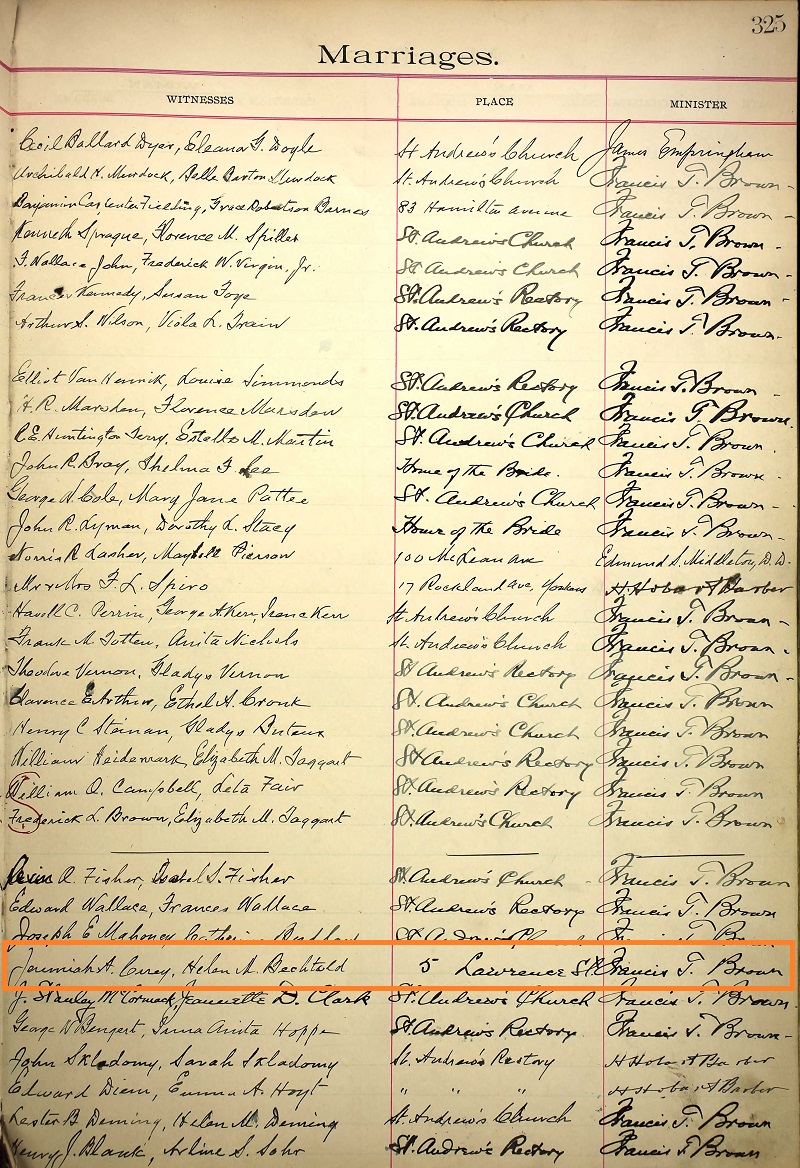 325
Marriages.
WITNESSES PLACE MINISTER
Cecil Ballard Dyer, Eleanor G. Doyle St Andrew's Church James Empringham
Archibald H. Murdock, Belle Barton Murdock St. Andrew's Church Francis T. Brown -
Benjamin Carpenter Fielding, Grace Robertson Barnes 83 Hamilton Avenue Francis T. Brown -
Kenneth Sprague, Florence M. Spiller St. Andrew's Church Francis T. Brown -
F. Wallace John, Frederick W. Virgin, Jr. St Andrew's Church Francis T. Brown -
Francis Kennedy, Susan Foye St. Andrew's Rectory Francis T. Brown -
Arthur S. Wilson, Viola L. Train St. Andrew's Rectory Francis T. Brown -
Elliot Van Louise Simmonds St. Andrew's Rectory Francis T. Brown -
H. R. Marsden, Florence Marsden St. Andrew's Church Francis T. Brown.
R. E. Huntington Terry, Estelle M. Martin St. Andrew's Church Francis T. Brown.
John R. Bray, Thelma F. Lee Home of the Bride. Francis T. Brown -
George N. Cole, Mary Jane Pattee St. Andrew's Church Francis T. Brown -
John R. Lyman, Dorothy L. Stacy Home of the Bride Francis T. Brown -
Norris R Lasher, Maybell Pierson 100 McLean Ave Edmund S. Middleton, D.D.
F. L. Spiro 17 Rockland Ave, Yonkers H Hobart Barber
C. Perrin, George A. Kerr, Irene Kerr St Andrew's Church Francis T. Brown -
Frank M. Totten, Anita Nichols St. Andrew's Church Francis T. Brown.
Theodore Vernon, Gladys Vernon St Andrew's Rectory Francis T. Brown -
Clarence E. Arthur, Ethel A. Cronk St. Andrew's Church Francis T. Brown
Henry C Gladys St. Andrew's Church Francis T. Brown
William Heidemark, Elizabeth M. Taggart St Andrew's Rectory Francis T. Brown
William A. Campbell, Leta Fair St. Andrew's Rectory Francis T. Brown
Frederick L. Brown, Elizabeth M. Taggart St. Andrew's Church Francis T. Brown
A. Fisher, Isabel S. Fisher St. Andrew's Church - Francis T. Brown
Edward Wallace, Frances Wallace St. Andrew's Rectory Francis T. Brown
Joseph E Mahoney
Jeremiah A. Curey, Helen M. Bechtold 5 Lawrence St. Francis T. Brown
J. Stanley McCormack, Jeannette D. Clark St. Andrew's Church Francis T. Brown.
George W Bengert, Irma Anita Hoppe St. Andrew's Rectory Francis T. Brown -
John Skladomy, Sarah Skladomy St. Andrew's Rectory H Hobart Barber
Edward Diem, Emma A. Hoyt " " " H Hobart Barber
Lester B Deming, Helen M. Deming St. Andrew's Church Francis T. Brown
Henry J. Blank, Arline S. Sohr St. Andrew's Rectory Francis T. Brown